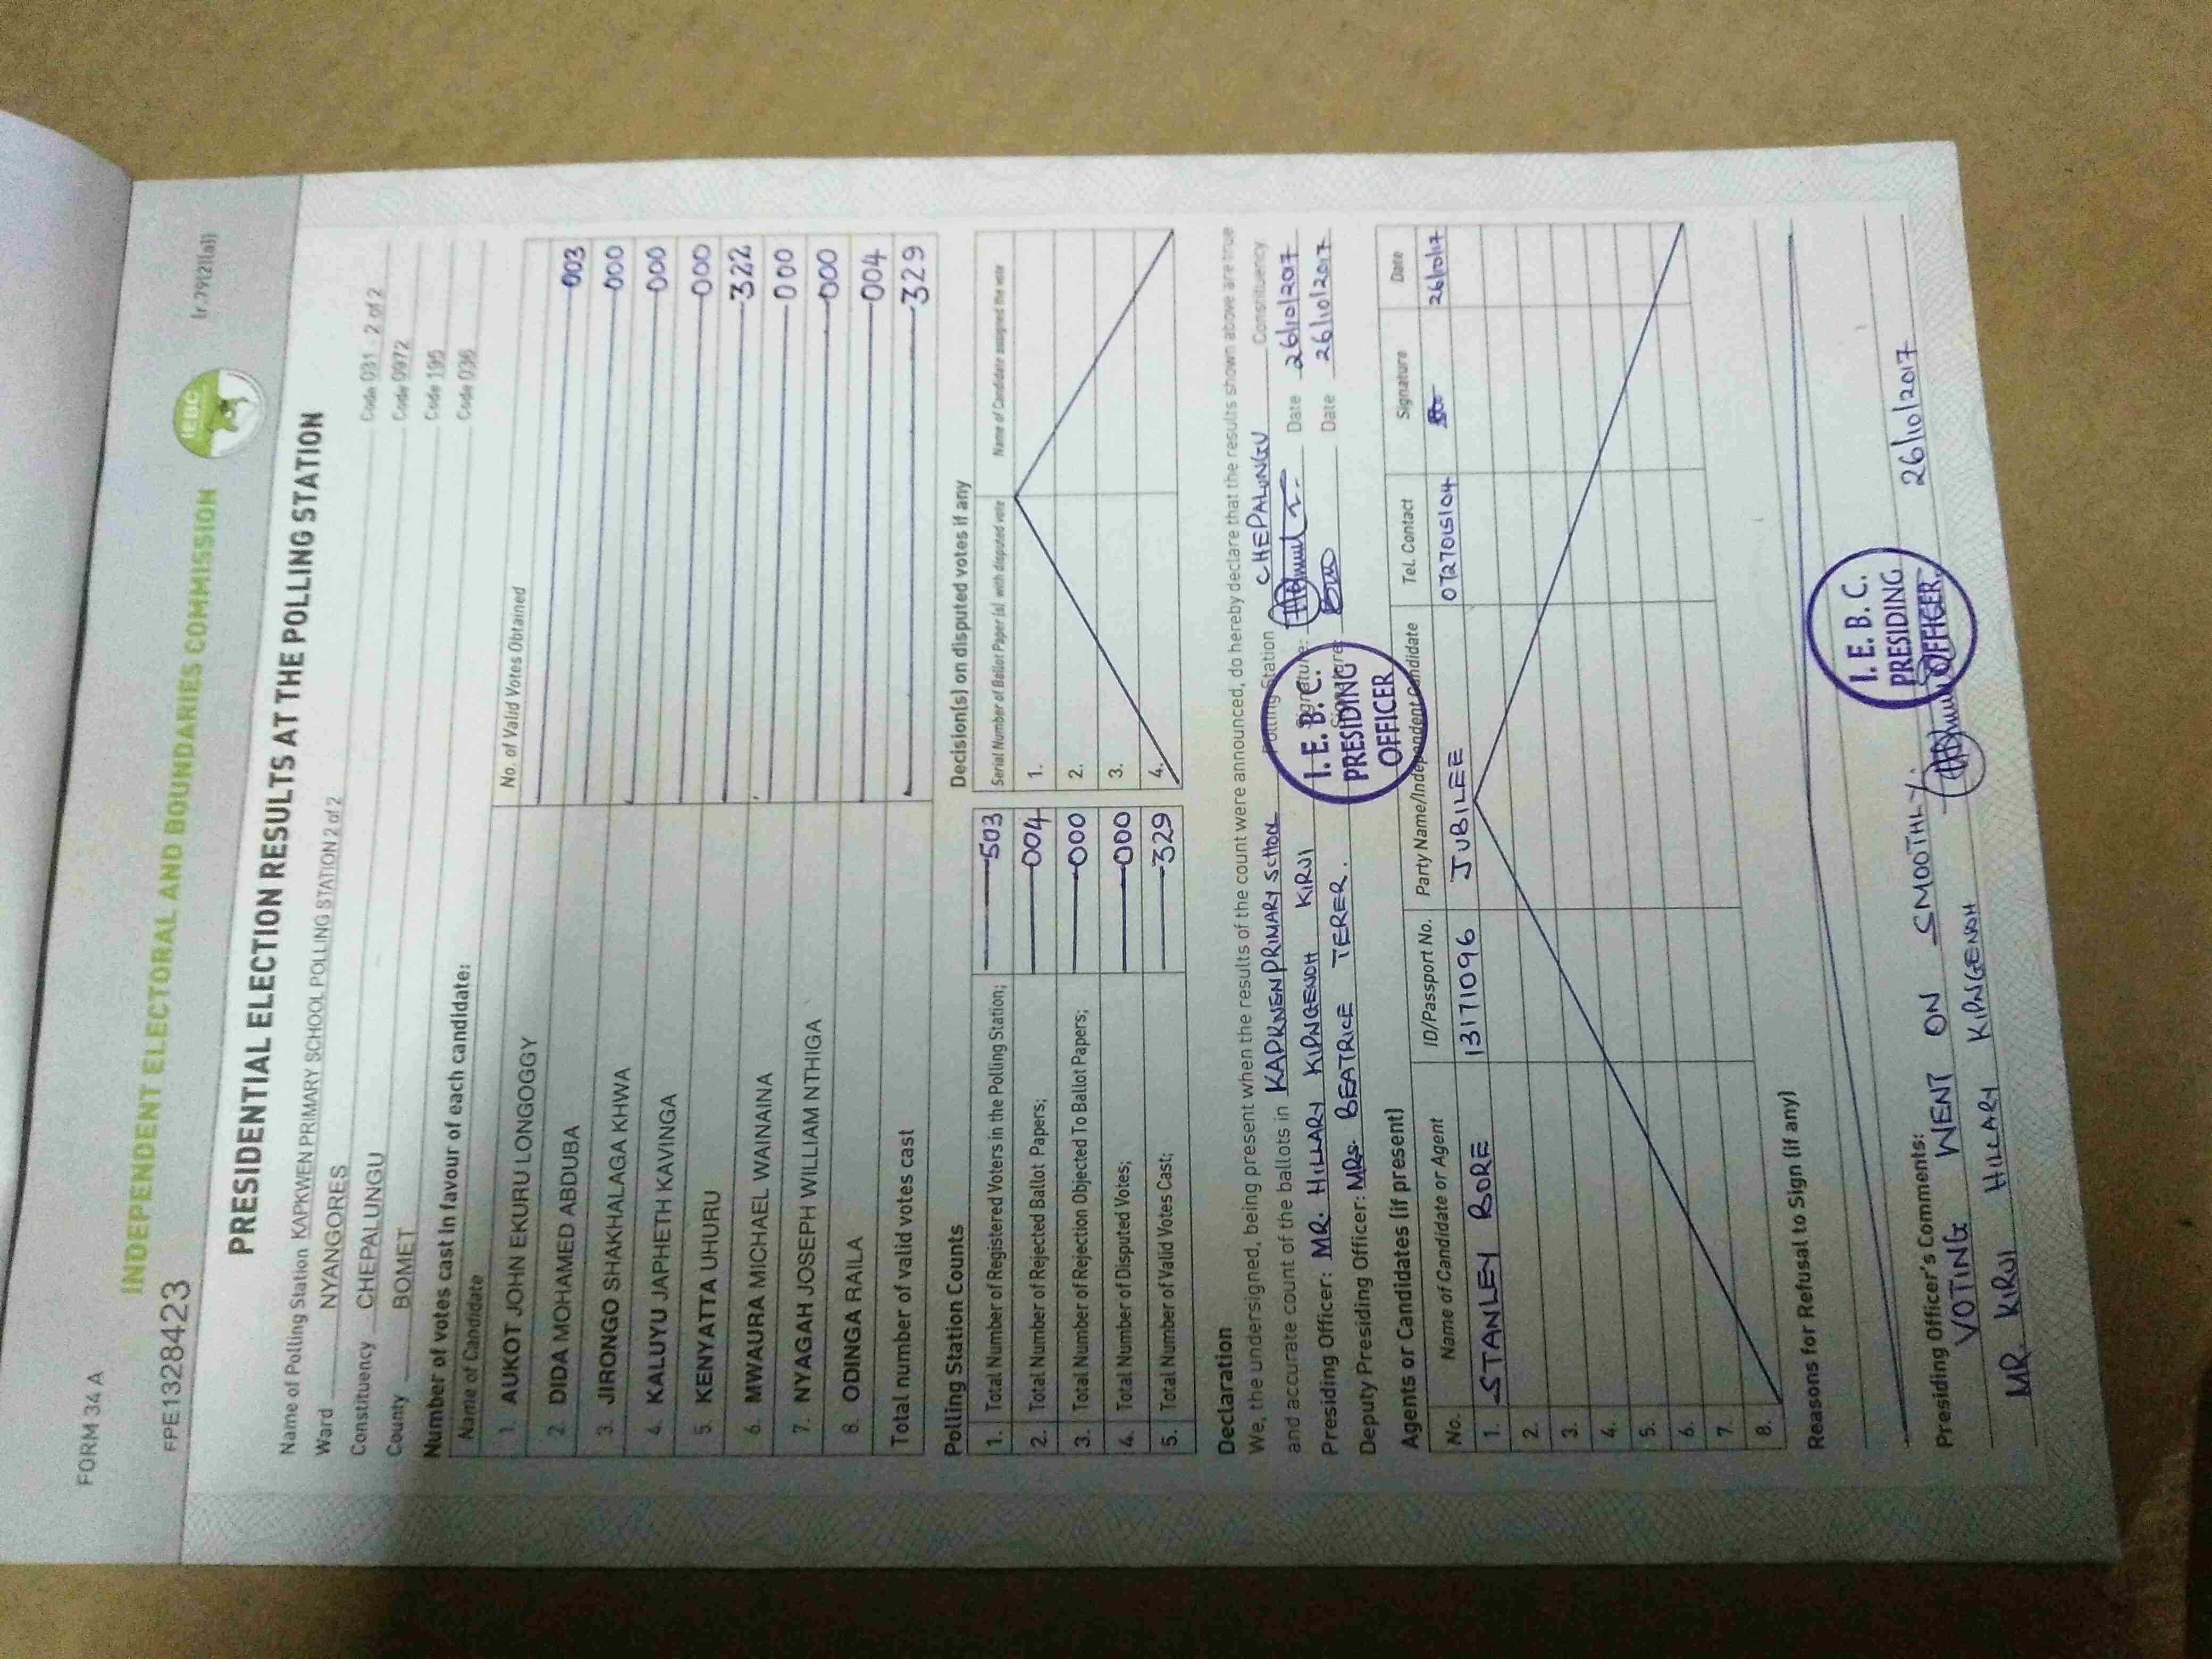 FORM 34 A
INDEPENDENT ELECTORAL AND BOUNDARIES COMMISSION
IEBC
FPE1328423
(r.79(2)(a))
PRESIDENTIAL ELECTION RESULTS AT THE POLLING STATION
Name of Polling Station KAPKWEN PRIMARY SCHOOL POLLING STATION 2 of 2 Code 031 - 2 of 2
Ward NYANGORES Code 0972
Constituency CHEPALUNGU Code 195
County BOMET Code 036
Number of votes cast in favour of each candidate:
Name of Candidate No. of Valid Votes Obtained
1. AUKOT JOHN EKURU LONGOGGY 003
2. DIDA MOHAMED ABDUBA 000
3. JIRONGO SHAKHALAGA KHWA 000
4. KALUYU JAPHETH KAVINGA 000
5. KENYATTA UHURU 322
6. MWAURA MICHAEL WAINAINA 000
7. NYAGAH JOSEPH WILLIAM NTHIGA 000
8. ODINGA RAILA 004
Total number of valid votes cast 329
Polling Station Counts
1. Total Number of Registered Voters in the Polling Station; 503
2. Total Number of Rejected Ballot Papers; 004
3. Total Number of Rejection Objected To Ballot Papers; 000
4. Total Number of Disputed Votes; 000
5. Total Number of Valid Votes Cast; 329
Decision(s) on disputed votes if any
Serial Number of Ballot Paper (s) with disputed vote Name of Candidate assigned the vote
1.
2.
3.
4.
Declaration
We, the undersigned, being present when the results of the count were announced, do hereby declare that the results shown above are true
and accurate count of the ballots in KAPKWEN PRIMARY SCHOOL Polling Station CHEPALUNGU Constituency
Presiding Officer: MR. HILLARY KIPNGENOH KIRUI Signature: Date 26/10/2017
Deputy Presiding Officer: MRS. BEATRICE TERER. Signature Date 26/10/2017
I. E. B. C.
PRESIDING
OFFICER
Agents or Candidates (if present)
No. Name of Candidate or Agent ID/Passport No. Party Name/Independent Candidate Tel. Contact Signature Date
1. STANLEY BORE 13171096 JUBILEE 0727015104 26/10/17
2.
3.
4.
5.
6.
7.
8.
Reasons for Refusal to Sign (if any)
Presiding Officer's Comments:
VOTING WENT ON SMOOTHLY.
MR. KIRUI HILLARY KIPNGENOH 26/10/2017
I. E. B. C.
PRESIDING
OFFICER